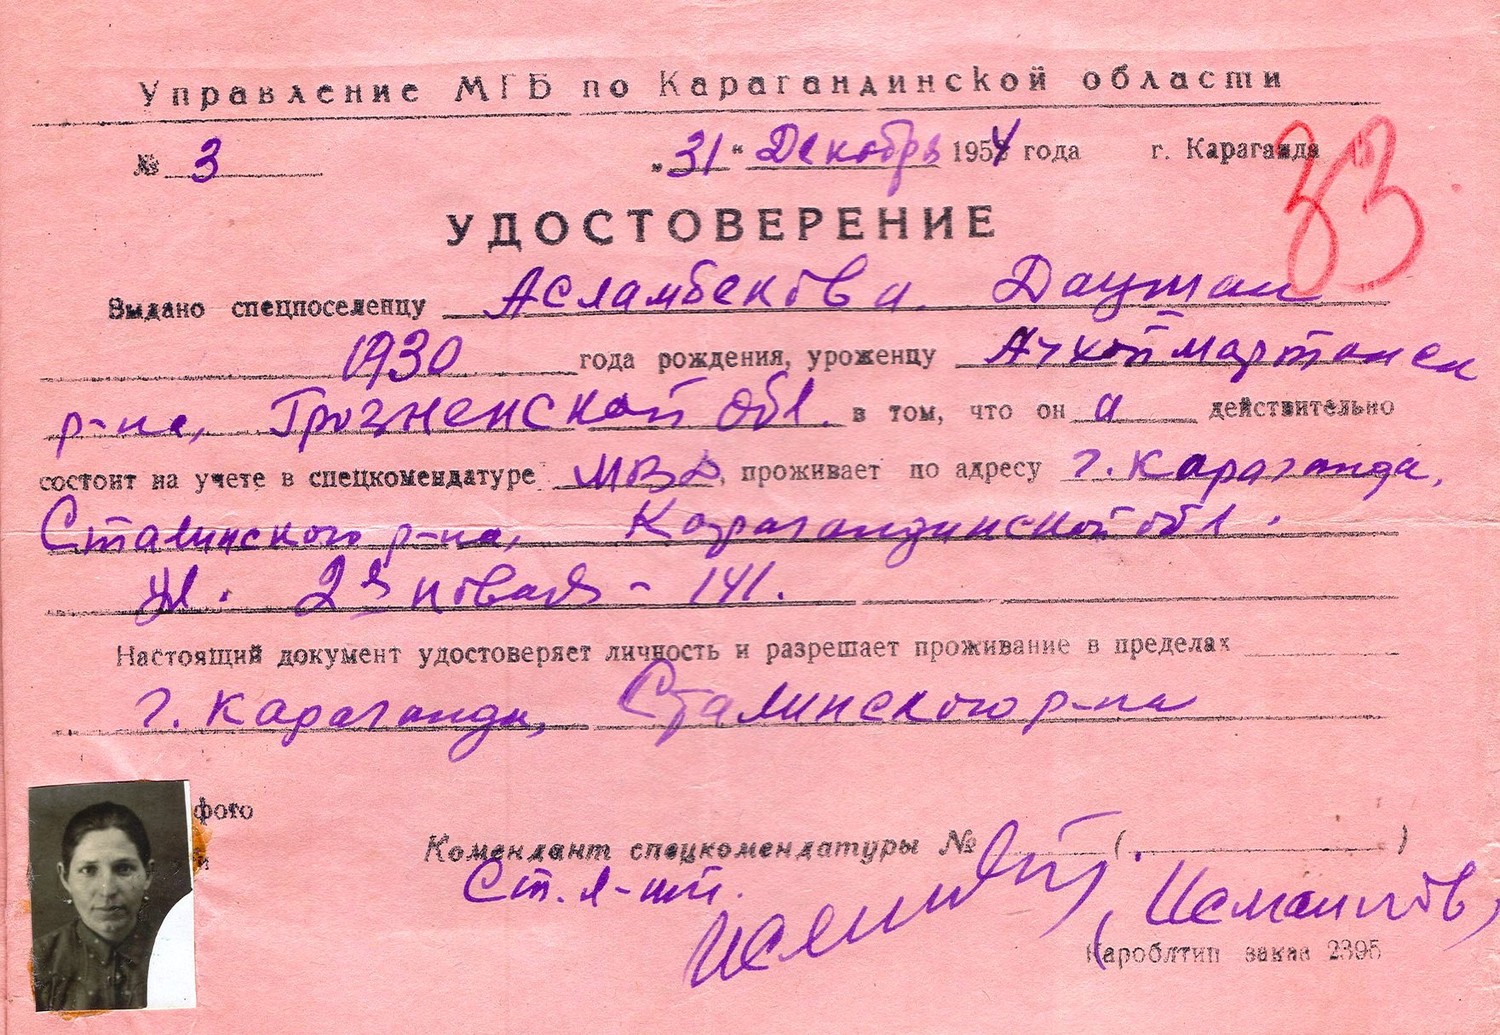 Управление МГБ по Карагандинской области
№ 3 „31“ Декабрь 1954 года г. Караганда
33
УДОСТОВЕРЕНИЕ
Выдано спецпоселенцу Асламбекова Даушан
1930 года рождения, уроженцу Ачхоймартанск
р-на, Грозненской обл. в том, что он а действительно
состоит на учете в спецкомендатуре МВД, проживает по адресу г. Караганда,
Сталинского р-на, Карагандинской обл.
ул. 2я новая - 141.
Настоящий документ удостоверяет личность и разрешает проживание в пределах
г. Караганды, Сталинского р-на
фото
Комендант спецкомендатуры № ( )
Ст. л-нт. (Исмаилов)
Кароблтип заказ 2395